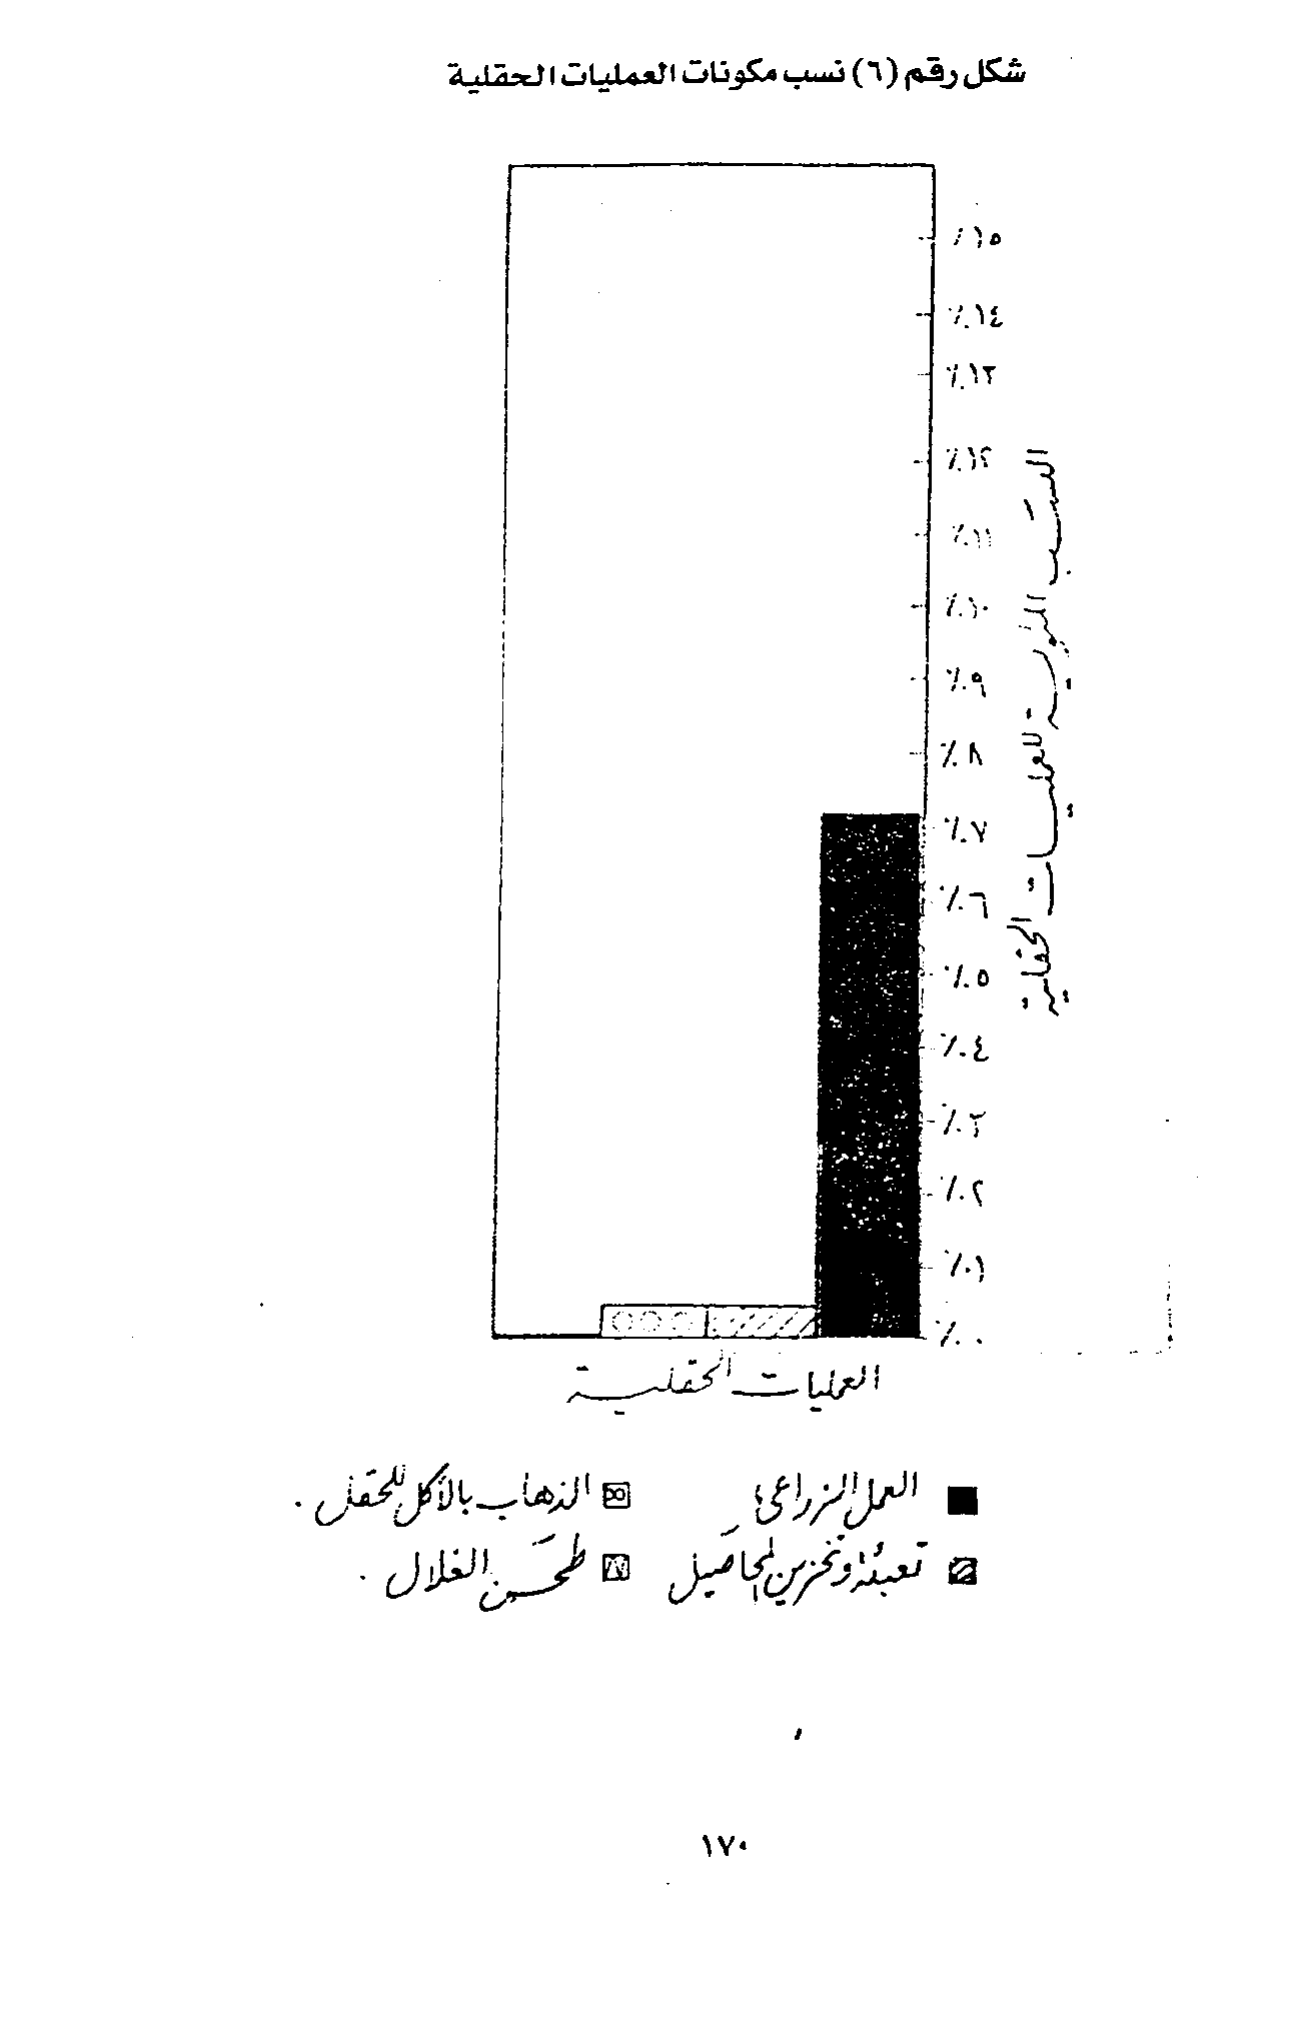 شكل رقم (٦) نسب مكونات العمليات الحقلية
٪١٥
٪١٤
٪١٣
٪١٢
٪١١
٪١٠
٪٩
٪٨
٪٧
٪٦
٪٥
٪٤
٪٣
٪٢
٪١
٪٠
النسب المئوية للعمليات الحقلية
العمليات الحقلية
العمل الزراعى
الذهاب بالأكل للحقل .
تعبئة وتخزين المحاصيل
طحن الغلال .
١٧٠